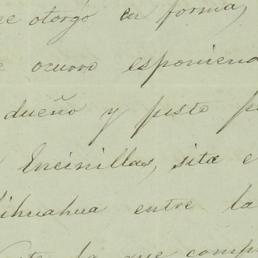 otorgó en forma,
ocurro esponiend
dueño y justo p
Encinillas, sita e
hihuahua entre la
la que comp